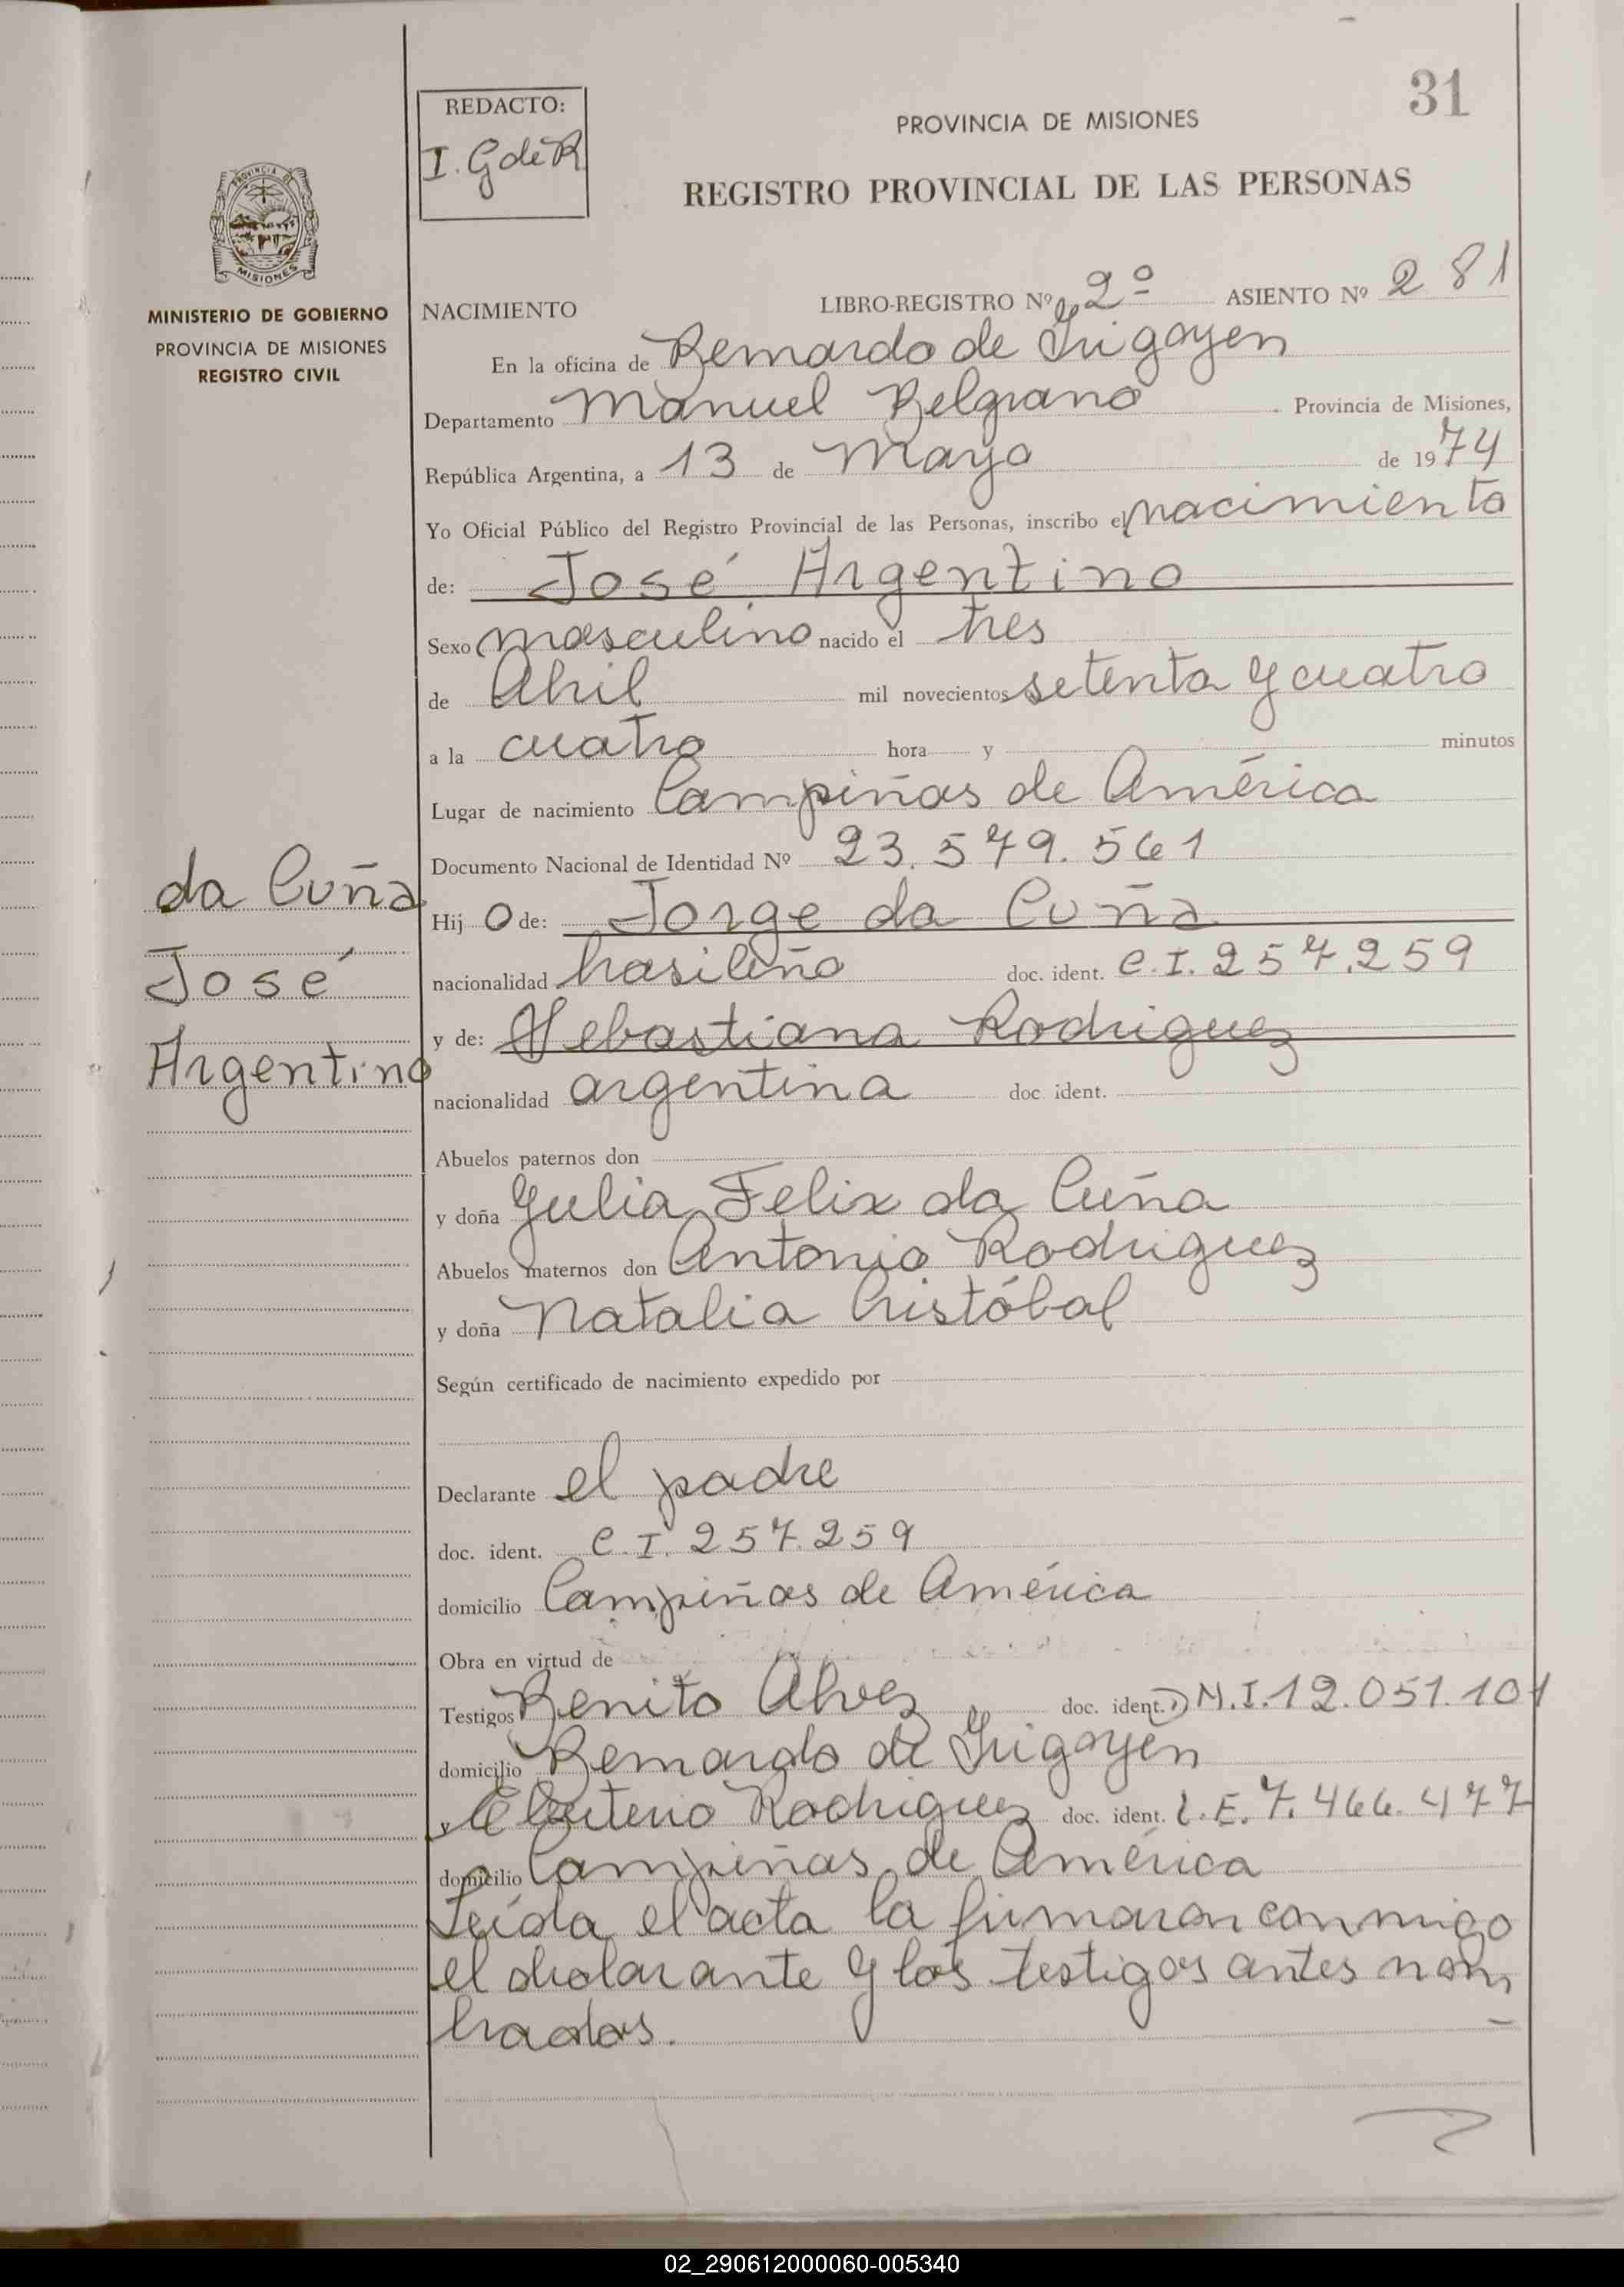 31
REDACTO:
I. G de R
PROVINCIA DE MISIONES
REGISTRO PROVINCIAL DE LAS PERSONAS
PROVINCIA DE
MISIONES
MINISTERIO DE GOBIERNO
PROVINCIA DE MISIONES
REGISTRO CIVIL
NACIMIENTO LIBRO-REGISTRO Nº 2º ASIENTO Nº 281
En la oficina de Bernardo de Irigoyen
Departamento Manuel Belgrano Provincia de Misiones,
República Argentina, a 13 de Mayo de 1974
Yo Oficial Público del Registro Provincial de las Personas, inscribo el nacimiento
de: José Argentino
Sexo masculino nacido el tres
de Abril mil novecientos setenta y cuatro
a la cuatro hora y minutos
Lugar de nacimiento Campiñas de América
Documento Nacional de Identidad Nº 23.579.561
da Cuña
José
Argentino
Hijo de: Jorge da Cuña
nacionalidad brasileño doc. ident. C.I. 257.259
y de: Sebastiana Rodriguez
nacionalidad argentina doc. ident.
Abuelos paternos don
y doña Julia Felix da Cuña
Abuelos maternos don Antonio Rodriguez
y doña Natalia Cristóbal
Según certificado de nacimiento expedido por
Declarante el padre
doc. ident. C.I. 257.259
domicilio Campiñas de América
Obra en virtud de
Testigos Benito Alvez doc. ident. M.I. 12.051.101
domicilio Bernardo de Irigoyen
y Eleuterio Rodriguez doc. ident. L.E. 7.466.477
domicilio Campiñas de América
Leída el acta la firmaron conmigo
el declarante y los testigos antes nom
brados.
02_290612000060-005340